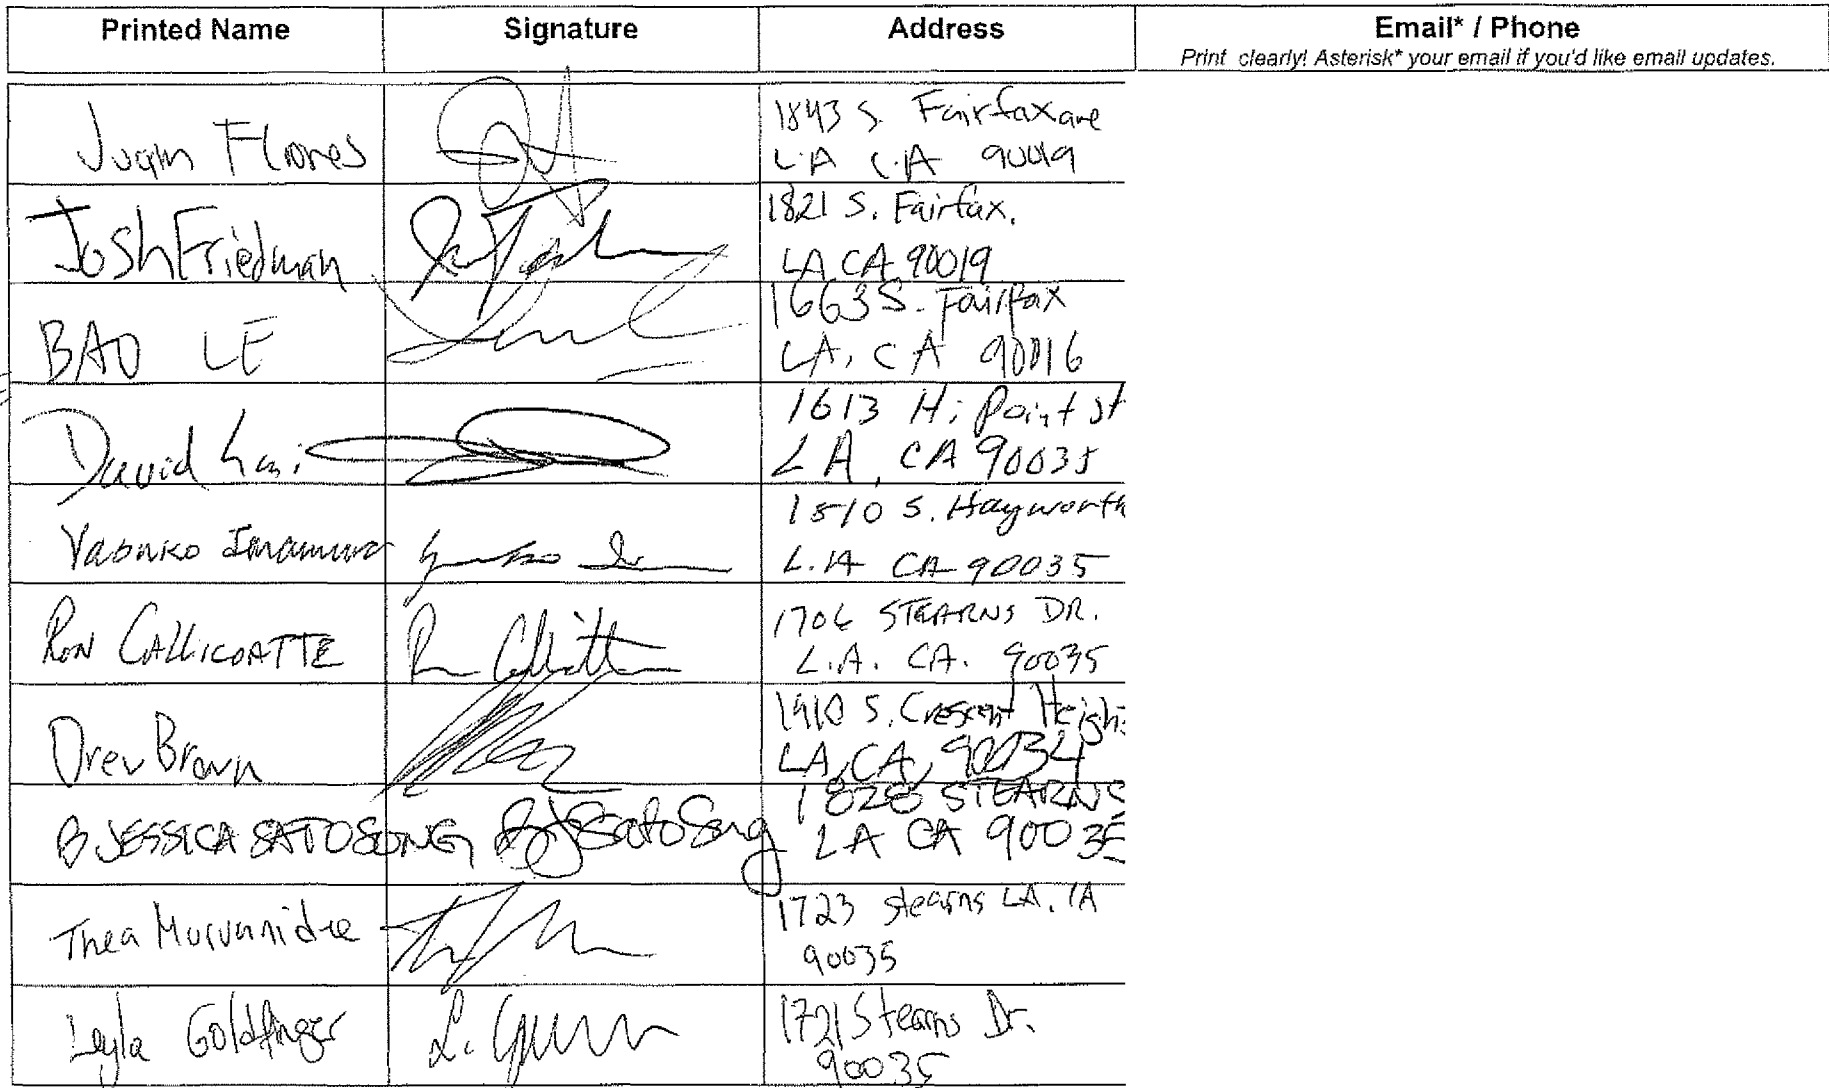 Printed Name Signature Address Email* / Phone
Print clearly! Asterisk* your email if you'd like email updates.
Juan Flores 1843 S. Fairfax ave
LA CA 90019
Josh Friedman 1821 S. Fairfax.
LA CA 90019
BAO LE 1663 S. Fairfax
LA, CA 90016
David 1613 Hi Point st
LA, CA 90035
Yasuko Imamura 1510 S. Hayworth
L.A CA 90035
RON CALLICOATTE 1706 STEARNS DR.
L.A. CA. 90035
Drew Brown 1910 S. Crescent Heights
LA, CA, 90034
B JESSICA SATOSONG BJSatoSong 1828 STEARNS
LA CA 90035
Thea 1723 Stearns LA, CA
90035
Leyla Goldfinger 1721 Stearns Dr.
90035